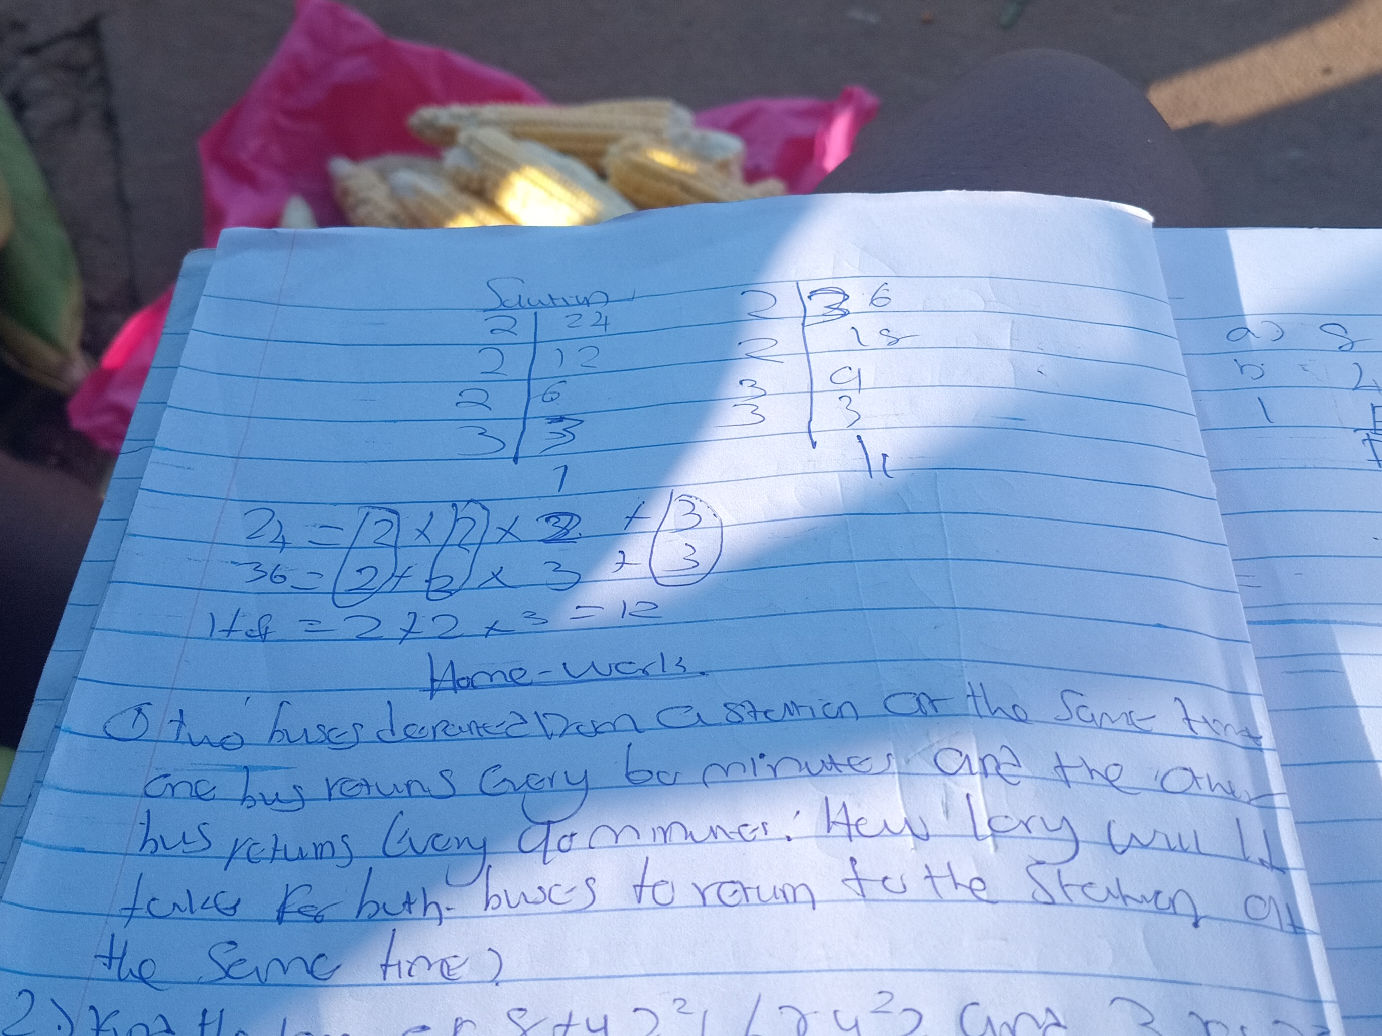 Solution
2 | 24 2 | 36
2 | 12 2 | 18
2 | 6 3 | 9
3 | 3 3 | 3
1 1
24 = 2 × 2 × 2 × 3
36 = 2 × 2 × 3 × 3
Hcf = 2 × 2 × 3 = 12
Home-work
① two buses departed from a station at the same time
one bus returns every 60 minutes and the other
bus returns every minutes. How long will it
take for both buses to return to the station at
the same time?
2) Find the
a) 8